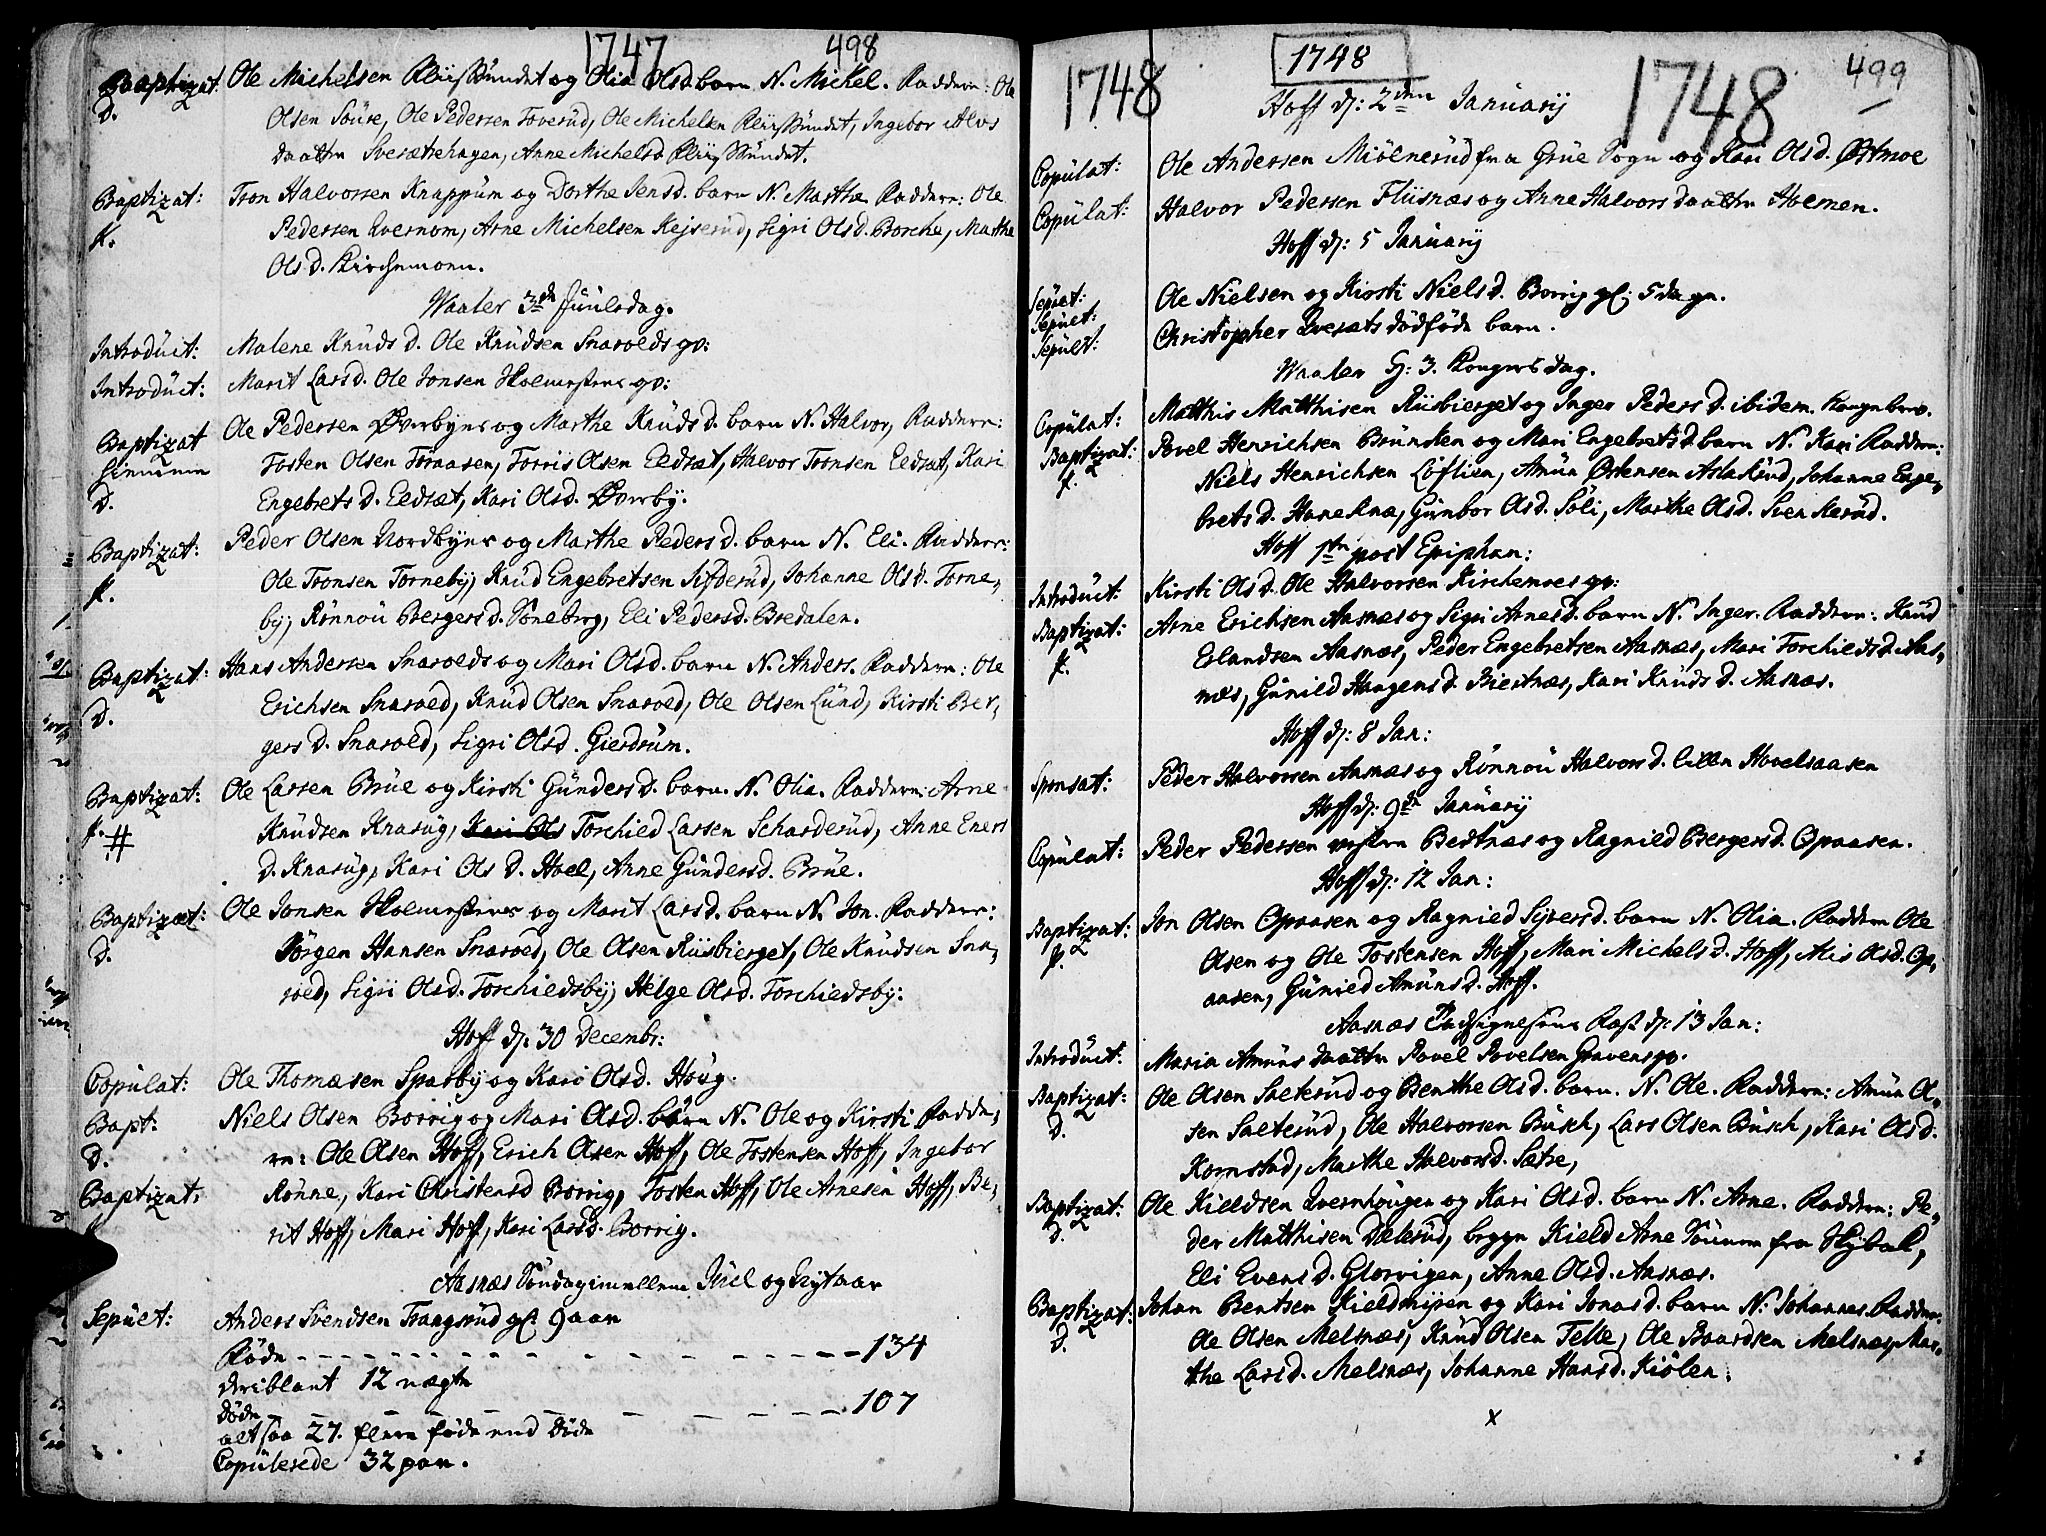 1747 498
Baptizat Ole Michelsen Kliisbundet og Olia Olsd. barn N. Mickel. Fadderne: Ole
D. Olsen Soure, Ole Pedersen Toverud, Ole Michelsen Kliisbundet, Ingebor Alvs
daatter Svesætrehagen, Anne Michelsd. Kliisbundet.
Baptizat: Tron Halvorsen Knappum og Dorthe Jensd. barn N. Marthe Faddere: Ole
f. Pedersen Qvernom, Arne Michelsen Kejserud, Sigri Olsd. Borche, Marthe
Olsd. Kirchemoen.
Waaler 3de Juulsdag.
Introduct: Malene Knuds D. Ole Knudsen Snarolds qv:
Introduct: Marit Larsd. Ole Jonsen Holmesterns qv:
Baptizat Ole Pedersen Øverbyns og Marthe Knuds d. barn N. Halvor, Faddere:
D. Tosten Olsen Toraasen, Torris Olsen Eedsæt, Halvor Tronsen Eedsæt, Kari
Engebrets D. Eedsæt, Kari Olsd. Øverby.
Baptizat: Peder Olsen Nordbyns og Marthe Peders d. barn N. Eli. Faddere:
f. Ole Tronsen Torneby, Knud Engebretsen Sifderud, Johanne Olsd. Torne,
by, Rønnou Bergers d. Soneberg, Eli Pedersd. Bredalen.
Baptizat: Hans Andersen Snarolds og Mari Olsd. barn N. Anders. Faddere: Ole
D. Erichsen Snaroed, Knud Olsen Snaroed, Ole Olsen Lund, Kirsti Ber,
gers D. Snaroed, Sigri Olsd. Gierdrum.
Baptizat: Ole Larsen Brue og Kirsti Gunders d. barn. N. Olia. Faddere: Arne
f. # Knudsen Knarug, Kari Ols Torchied Larsen Scharderud, Anne Eners
D. Knarug, Kari Ols D. Hoel, Anne Gundersd. Brue.
Baptizat: Ole Jonsen Holmesterns og Marit Larsd. barn N. Jon. Faddere:
D. Jørgen Hansen Snaroed, Ole Olsen Riisbierget, Ole Knudsen Sna,
roed, Sigri Olsd. Torchiedsby, Helge Olsd. Torchiedsby.
Hoff d: 30 Decembr:
Copulat: Ole Thomæsen Sparby og Kari Olsd. Houg.
Bapt: Niels Olsen Borrig og Mari Olsd. børn N. Ole og Kirsti Fadde,
D. re: Ole Olsen Hoff, Erich Olsen Hoff, Ole Tostensen Hoff, Ingebor
Baptizat, Rønne, Kari Christensd Borrig, Tosten Hoff, Ole Arnesen Hoff, Be,
f. rit Hoff, Mari Hoff, Kari Larsd. Borrig.
Aasnæs Søndag imellem Juel og Nytaar
Sepuet: Anders Svendsen Trangsrud gl. 9 aar
Føde - - - - 134
deriblant 12 uægte
Døde - - - - 107
altsaa 27. flere føde end Døde
Copulerede 32 par.
1748 1748 1748 499
Hoff d: 2den Januarij
Copulat: Ole Andersen Miølnerud fra Grue Sogn og Kari Olsd. Østmoe
Copulat: Halvor Pedersen Fluisnæs og Anne Halvors daatter Holmen.
Hoff d: 5 Januarij
Sepuet: Ole Nielsen og Kirsti Niels d. Borrig gl: 5 dage.
Sepuet:
Sepult: Christopher Qvesæts dødføde barn.
Waaler H: 3. Kongersdag.
Copulat: Matthis Matthisen Riisbierget og Inger Peders D. ibidem.
Baptizat: Povel Henrichsen Brunsken og Mari Engebretsd. barn N. Kari Faddere:
f. Niels Henrichsen Loftlien, Amun Ostensen Aslaksud, Johanne Enge,
brets d. Haneknæ, Gunbor Olsd. Soli, Marthe Olsd. Svenkerud.
Hoff 1ste post Epiphan:
Introduct: Kirsti Olsd. Ole Halvorsen Kirchemoes qv:
Baptizat: Arne Erichsen Aasnæs og Sigri Arnesd. barn N. Inger. Faddere: Knud
f. Erlandsen Aasnæs, Peder Engebretsen Aasnæs, Mari Torchieds d. Aas,
næs, Gunild Haagens d. Biertnæs, Kari Knuds d. Aasnæs.
Hoff d: 8 Jan:
Sponsat: Peder Halvorsen Aasnæs og Rønnou Halvors d. lille Hovelsaasen
Hoff d: 9de Januarij
Copulat: Peder Pedersen Bertnæs og Ragnild Bergersd. Opaasen.
Hoff d: 12 Jan:
Baptizat: Jon Olsen Opaasen og Ragnied Syversd. barn N. Olia. Faddere Ole
f. Olsen og Ole Tostensen Hoff, Mari Michels d. Hoff, Mis Olsd. Op,
aasen, Gunied Amuns d. Hoff.
Aasnæs d: 13 Jan:
Introduct: Maria Amuns daatter Povel Povelsen Gravens qv.
Baptizat: Ole Olsen Sæterud og Benthe Olsd. barn. N. Ole. Faddere: Amun Ol,
D. sen Sæterud, Ole Halvorsen Busch, Lars Olsen Busch, Kari Olsd.
Kornstad, Marthe Halvorsd. Sætre,
Baptizat: Ole Kieldsen Qvernhougen og Kari Olsd. barn N. Arne. Faddere: Pe,
D. der Matthisen Dælerud, begge Kield Arne Sønner fra Skybæk,
Eli Evens d. Glorvigen, Anne Olsd. Aasnæs.
Baptizat: Johan Bentsen Kieldmypen og Kari Jonasd. barn N: Johannes. Faddere:
D. Ole Olsen Melsnæs, Knud Olsen Telte, Ole Baardsen Melsnæs, Mar,
the Larsd. Melsnæs, Johanne Hansd. Kiølen.
x